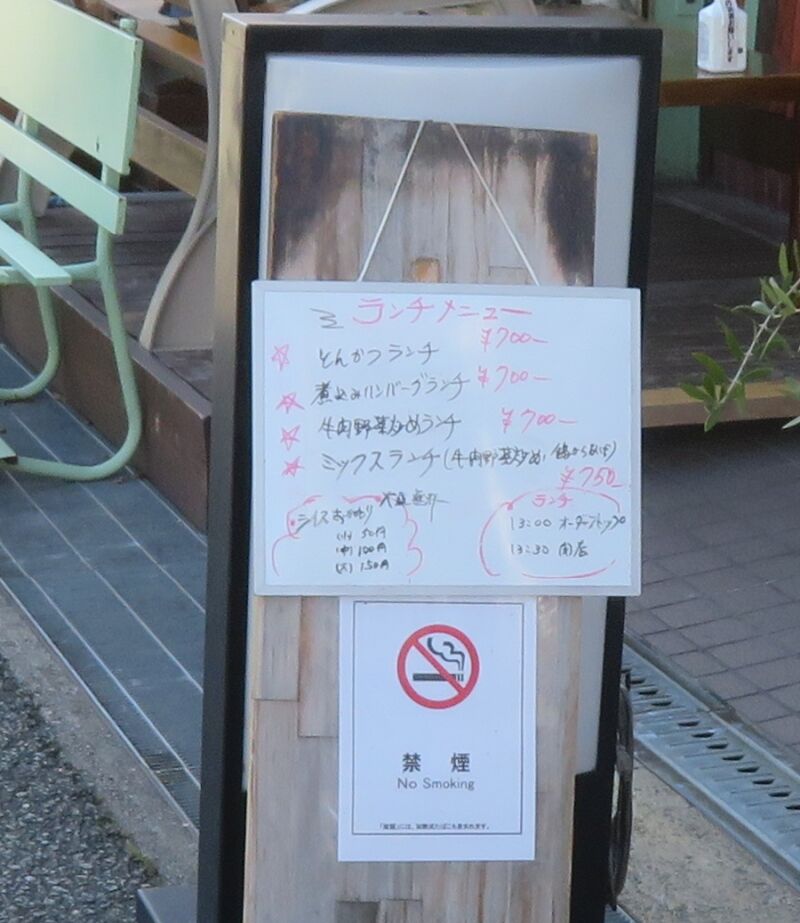 ランチメニュー
とんかつランチ ¥700ー
煮込みハンバーグランチ ¥700ー
牛肉野菜炒めランチ ¥700ー
ミックスランチ(牛肉野菜炒め、鶏からあげ)
¥750
ライスおかわり
(小) 50円
(中) 100円
(大) 150円
ランチ
13:00 オーダーストップ
13:30 閉店
禁煙
No Smoking